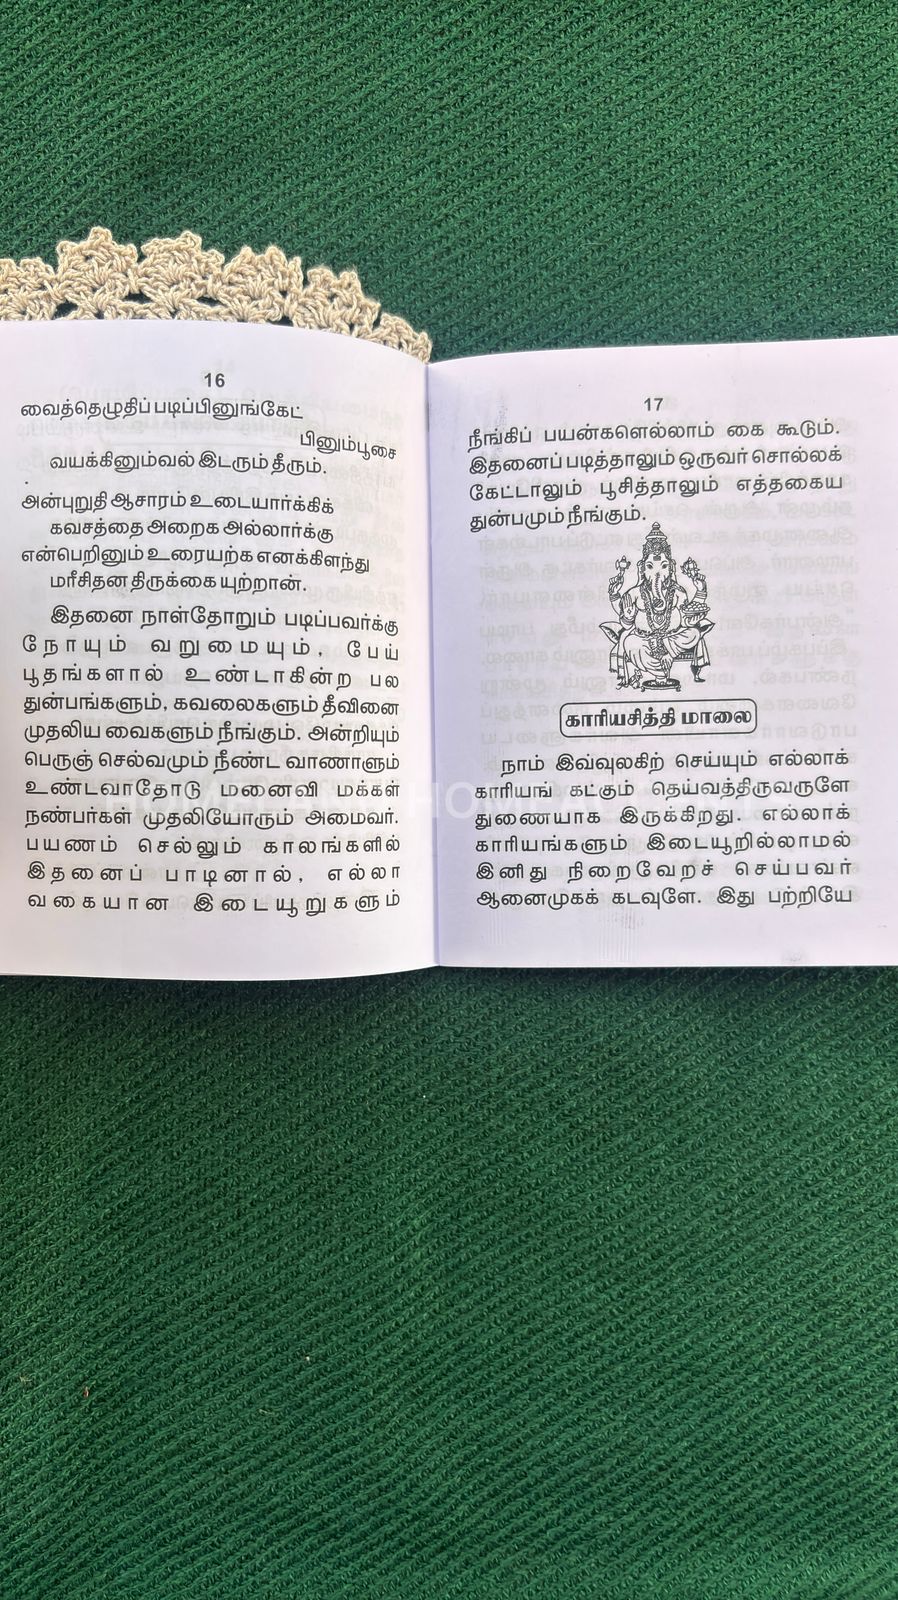 16
வைத்தெழுதிப்படிப்பினுங்கேட்
பினும்பூசை
வயக்கினும்வல் இடரும் தீரும்.
அன்புறுதி ஆசாரம் உடையார்க்கிக்
கவசத்தை அறைக அல்லார்க்கு
என்பெறினும் உரையற்க எனக்கிளந்து
மரீசிதன திருக்கை யுற்றான்.
இதனை நாள்தோறும் படிப்பவர்க்கு
நோயும் வறுமையும், பேய்
பூதங்களால் உண்டாகின்ற பல
துன்பங்களும், கவலைகளும் தீவினை
முதலிய வைகளும் நீங்கும். அன்றியும்
பெருஞ் செல்வமும் நீண்ட வாணாளும்
உண்டவாதோடு மனைவி மக்கள்
நண்பர்கள் முதலியோரும் அமைவர்.
பயணம் செல்லும் காலங்களில்
இதனைப் பாடினால், எல்லா
வகையான இடையூறுகளும்
17
நீங்கிப் பயன்களெல்லாம் கை கூடும்.
இதனைப் படித்தாலும் ஒருவர் சொல்லக்
கேட்டாலும் பூசித்தாலும் எத்தகைய
துன்பமும் நீங்கும்.
காரியசித்தி மாலை
நாம் இவ்வுலகிற் செய்யும் எல்லாக்
காரியங் கட்கும் தெய்வத்திருவருளே
துணையாக இருக்கிறது. எல்லாக்
காரியங்களும் இடையூறில்லாமல்
இனிது நிறைவேறச் செய்பவர்
ஆனைமுகக் கடவுளே. இது பற்றியே